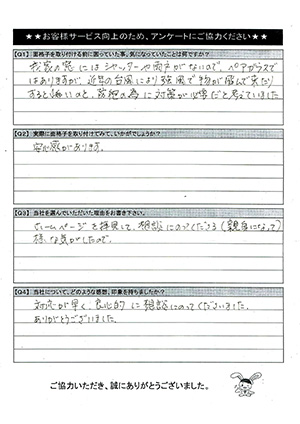 ★★お客様サービス向上のため、アンケートにご協力ください★★
【Q1】面格子を取り付ける前に困っていた事、気になっていたことは何ですか？
我家の窓にはシャッターや雨戸がないので、ペアガラスで
はありますが、近年の台風により強風で物が飛んで来たり
すると怖いのと、防犯の為に対策が必要だと考えていました
【Q2】実際に面格子を取り付けてみて、いかがでしょうか？
安心感があります。
【Q3】当社を選んでいただいた理由をお書き下さい。
ホームページを拝見して、相談にのってくださる(親身になって)
様な気がしたので。
【Q4】当社について、どのような感想、印象を持ちましたか？
対応が早く、良心的に相談にのってくださいました。
ありがとうございました。
ご協力いただき、誠にありがとうございました。